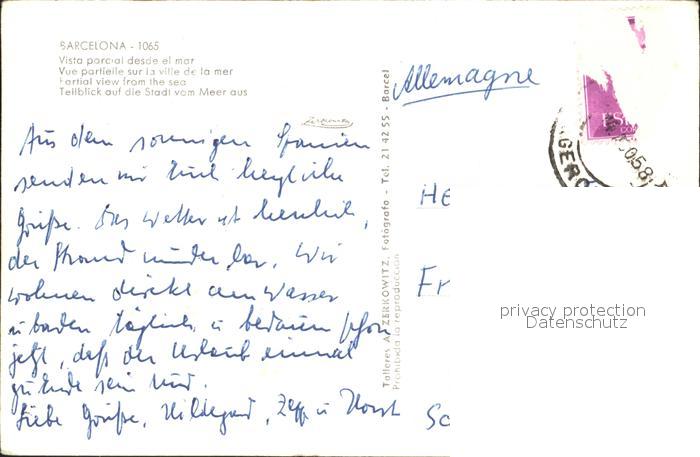 BARCELONA - 1065
Vista parcial desde el mar
Vue partielle sur la ville de la mer
Partial view from the sea
Teilblick auf die Stadt vom Meer aus
Zerkowitz
Aus dem sonnigen Spanien
senden wir Euch herzliche
Grüße. Das Wetter ist herrlich,
der Strand wunderbar. Wir
wohnen direkt am Wasser
u baden täglich u bedauern schon
jetzt, daß der Urlaub einmal
zu Ende sein wird.
Liebe Grüße, Hildegard, Zepp u Horst
Talleres A. ZERKOWITZ, Fotógrafo - Tel. 21 42 55 - Barcel
Prohibida la reproducción
Allemagne
HE
Fr
Sc
privacy protection
Datenschutz